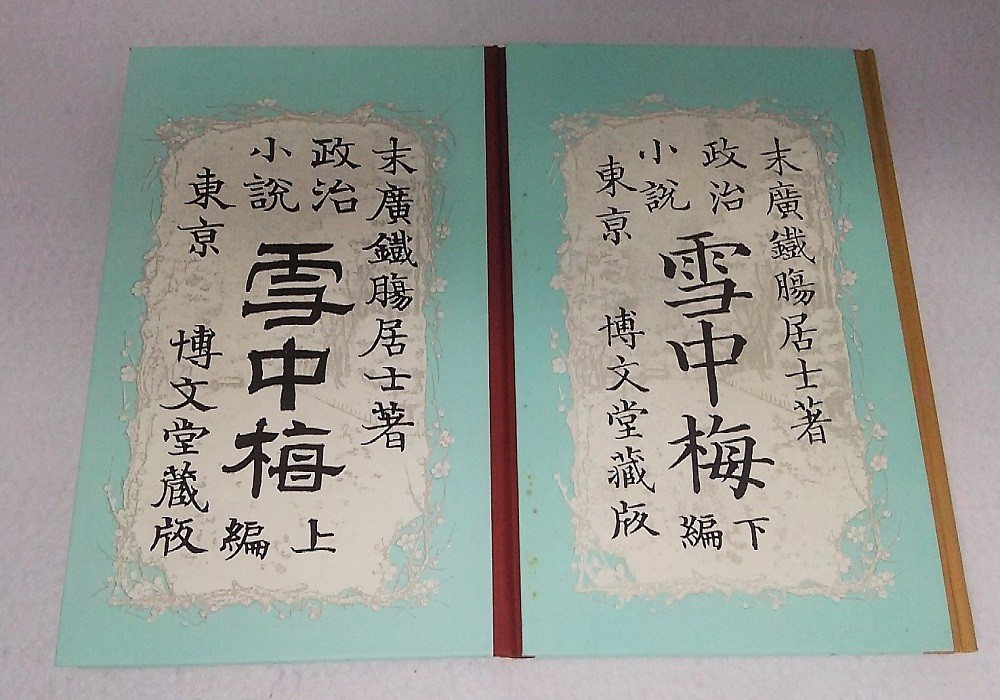 末廣鐵膓居士著
政治
小說
雪中梅
上編
東京 博文堂藏版
末廣鐵膓居士著
政治
小說
雪中梅
下編
東京 博文堂藏版